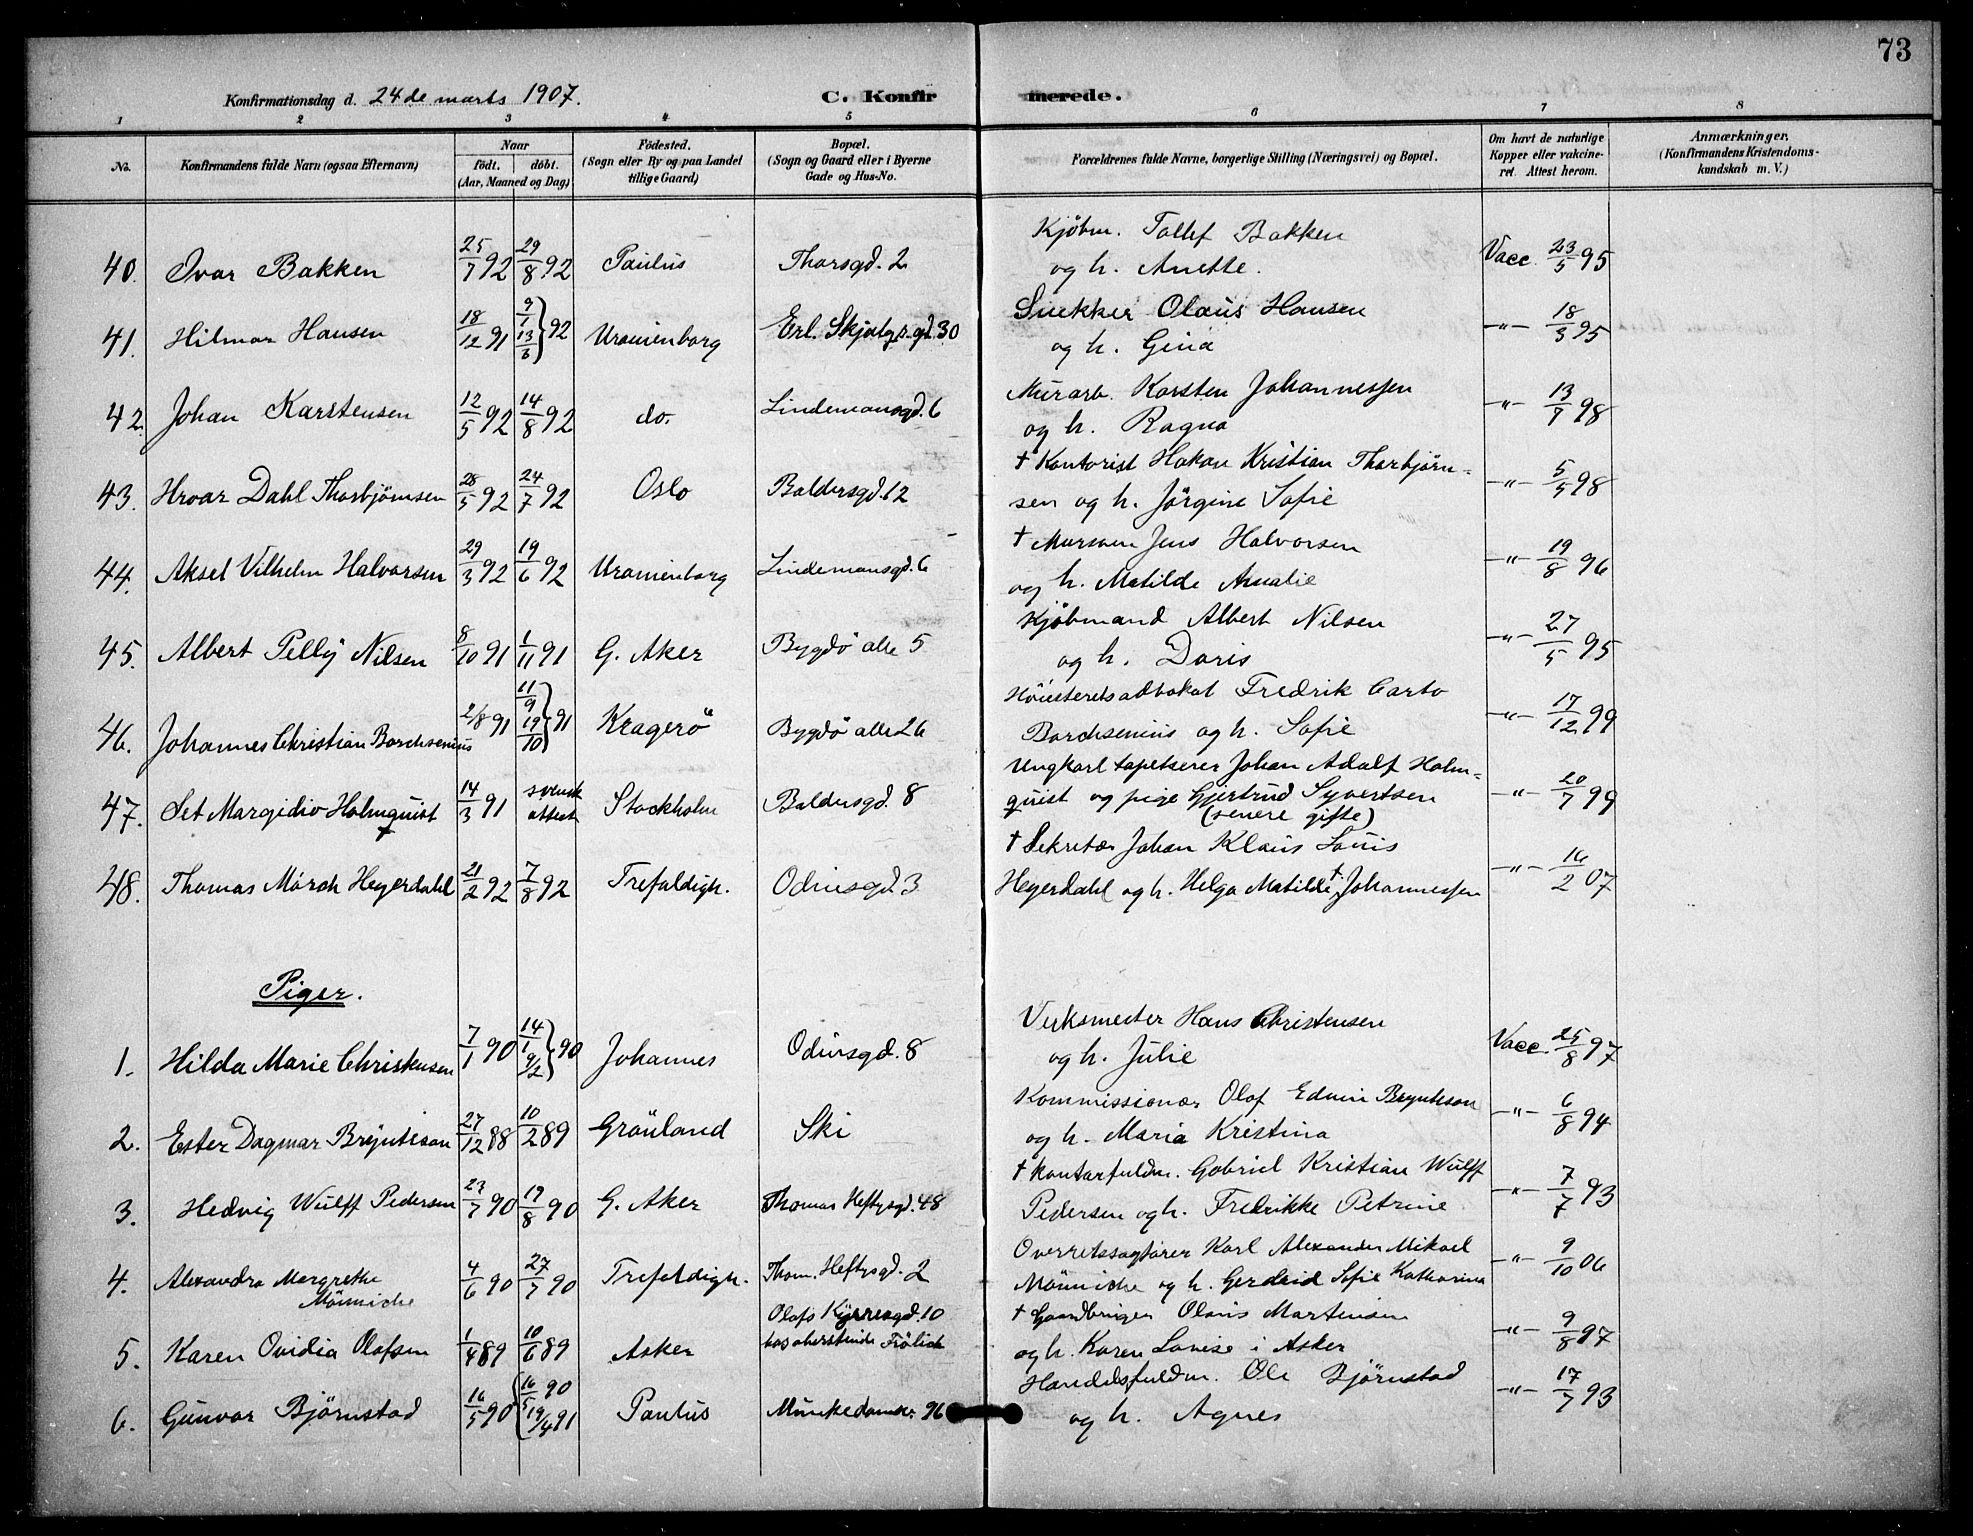 73
Konfirmationsdag d. 24de marts 1907. C. Konfirmerede.
1 2 3 4 5 6 7 8
No. Konfirmandens fulde Navn (ogsaa Efternavn) Naar födt. döbt. (Aar, Maaned og Dag) Födested. (Sogn eller By og paa Landet tillige Gaard) Bopæl. (Sogn og Gaard eller i Byerne Gade og Hus-No. Forældrenes fulde Navne, borgerlige Stilling (Næringsvei) og Bopæl. Om havt de naturlige Kopper eller vakcineret. Attest herom. Anmærkninger. (Konfirmandens Kristendomskundskab m. V.)
40. Ivar Bakken 25/7 92 29/8 92 Paulus Thorsgd. 2 Kjöbm. Tollef Bakken
og h. Anette. Vacc. 23/5 95
41. Hilmar Hansen 18/12 91 9/1 13/3 } 92 Uranienborg Erl. Skjalgs.gd. 30 Snekker Olaus Hansen
og h. Gina -"- 18/3 95
42. Johan Karstensen 12/5 92 14/8 92 do. Lindemansgd. 6 Murarb. Karsten Johannessen
og h. Ragna -"- 13/7 98
43. Hroar Dahl Thorbjörnsen 28/5 92 24/7 92 Oslo Baldersgd. 12 † Kontorist Hakon Kristian Thorbjörn=
sen og h. Jörgine Sofie -"- 5/5 98
44. Aksel Vilhelm Halvorsen 29/3 92 19/6 92 Uranienborg Lindemansgd. 6 † Mursven Jens Halvorsen
og h. Matilde Amalie -"- 19/8 96
45. Albert Pelly Nilsen 8/10 91 1/11 91 G. Aker Bygdö alle 5 Kjöbmand Albert Nilsen
og h. Doris -"- 27/5 95
46. Johannes Christian Borchsenius 2/8 91 11/9 19/10 } 91 Kragerö Bygdö alle 26 Höiesteretsadvokat Fredrik Carto
Borchsenius og h. Sofie -"- 17/12 99
47. Set Margidio Holmquist 14/3 91 svensk attest Stockholm Baldersgd. 8 Ungkarl tapetserer Johan Adolf Holm=
quist og pige Gjertrud Syvertsen
(senere gifte) -"- 20/7 99
48. Thomas Mörch Heyerdahl 21/2 92 7/8 92 Trefoldigh. Odinsgd. 3 † Sekretær Johan Klaus Louis
Heyerdahl og h. Helga Matilde † Johannessen -"- 16/2 07
Piger.
1. Hilda Marie Christensen 7/1 90 14/1 9/2 } 90 Johannes Odinsgd. 8 Verksmester Hans Christensen
og h. Julie Vacc. 25/8 97
2. Ester Dagmar Brynteson 27/12 88 10/2 89 Grönland Ski Kommissionær Olof Edwin Brynteson
og h. Maria Kristina -"- 6/8 94
3. Hedvig Wulff Pedersen 23/7 90 19/8 90 G. Aker Thomas Heftysgd. 48 † Kontorfuldm. Gabriel Kristian Wulff
Pedersen og h. Fredrikke Petrine -"- 7/7 93
4. Alexandra Margrethe
Mönniche 4/6 90 27/7 90 Trefoldigh. Thom. Heftysgd. 2 Overretssagförer Karl Alexander Mikael
Mönniche og h. Gerdeid Sofie Katharina -"- 9/10 06
5. Karen Ovidia Olafsen 1/4 89 10/6 89 Asker Olafs Kyrresgd. 10
hos oberstinde Frölich † Gaardbruger Olaus Martinsen
og h. Karen Lovise i Asker -"- 9/8 97
6. Gunvor Björnstad 16/5 90 { 16/5 90 19/4 91 Paulus Munkedamsv. 96 Handelsfuldm. Ole Björnstad
og h. Agnes -"- 17/7 93